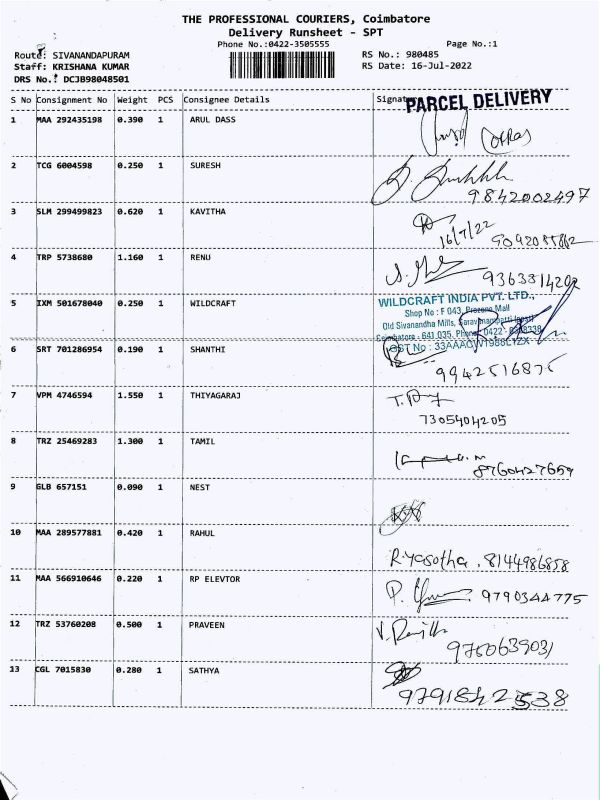 THE PROFESSIONAL COURIERS, Coimbatore
Delivery Runsheet - SPT
Phone No.:0422-3505555 Page No.:1
Route: SIVANANDAPURAM RS No.: 980485
Staff: KRISHANA KUMAR RS Date: 16-Jul-2022
DRS No.: DCJB98048501
S No Consignment No Weight PCS Consignee Details Signature
PARCEL DELIVERY
1 MAA 292435198 0.390 1 ARUL DASS
2 TCG 6004598 0.250 1 SURESH
9842002497
3 SLM 299499823 0.620 1 KAVITHA
16/7/22
4 TRP 5738680 1.160 1 RENU
9363314202
5 IXM 501678040 0.250 1 WILDCRAFT
WILDCRAFT INDIA PVT. LTD.,
Shop No : F 043, Prozone Mall
Old Sivanandha Mills, Saravanampatti (post)
Coimbatore - 641 035, Phone: 0422
GST No : 33AAACW1988L1ZX
6 SRT 701286954 0.190 1 SHANTHI
7 VPM 4746594 1.550 1 THIYAGARAJ
7305404205
8 TRZ 25469283 1.300 1 TAMIL
8760427659
9 GLB 657151 0.090 1 NEST
10 MAA 289577881 0.420 1 RAHUL
R.Yasotha. 8144986858
11 MAA 566910646 0.220 1 RP ELEVTOR
9790344775
12 TRZ 53760208 0.500 1 PRAVEEN
13 CGL 7015830 0.280 1 SATHYA
9791842538